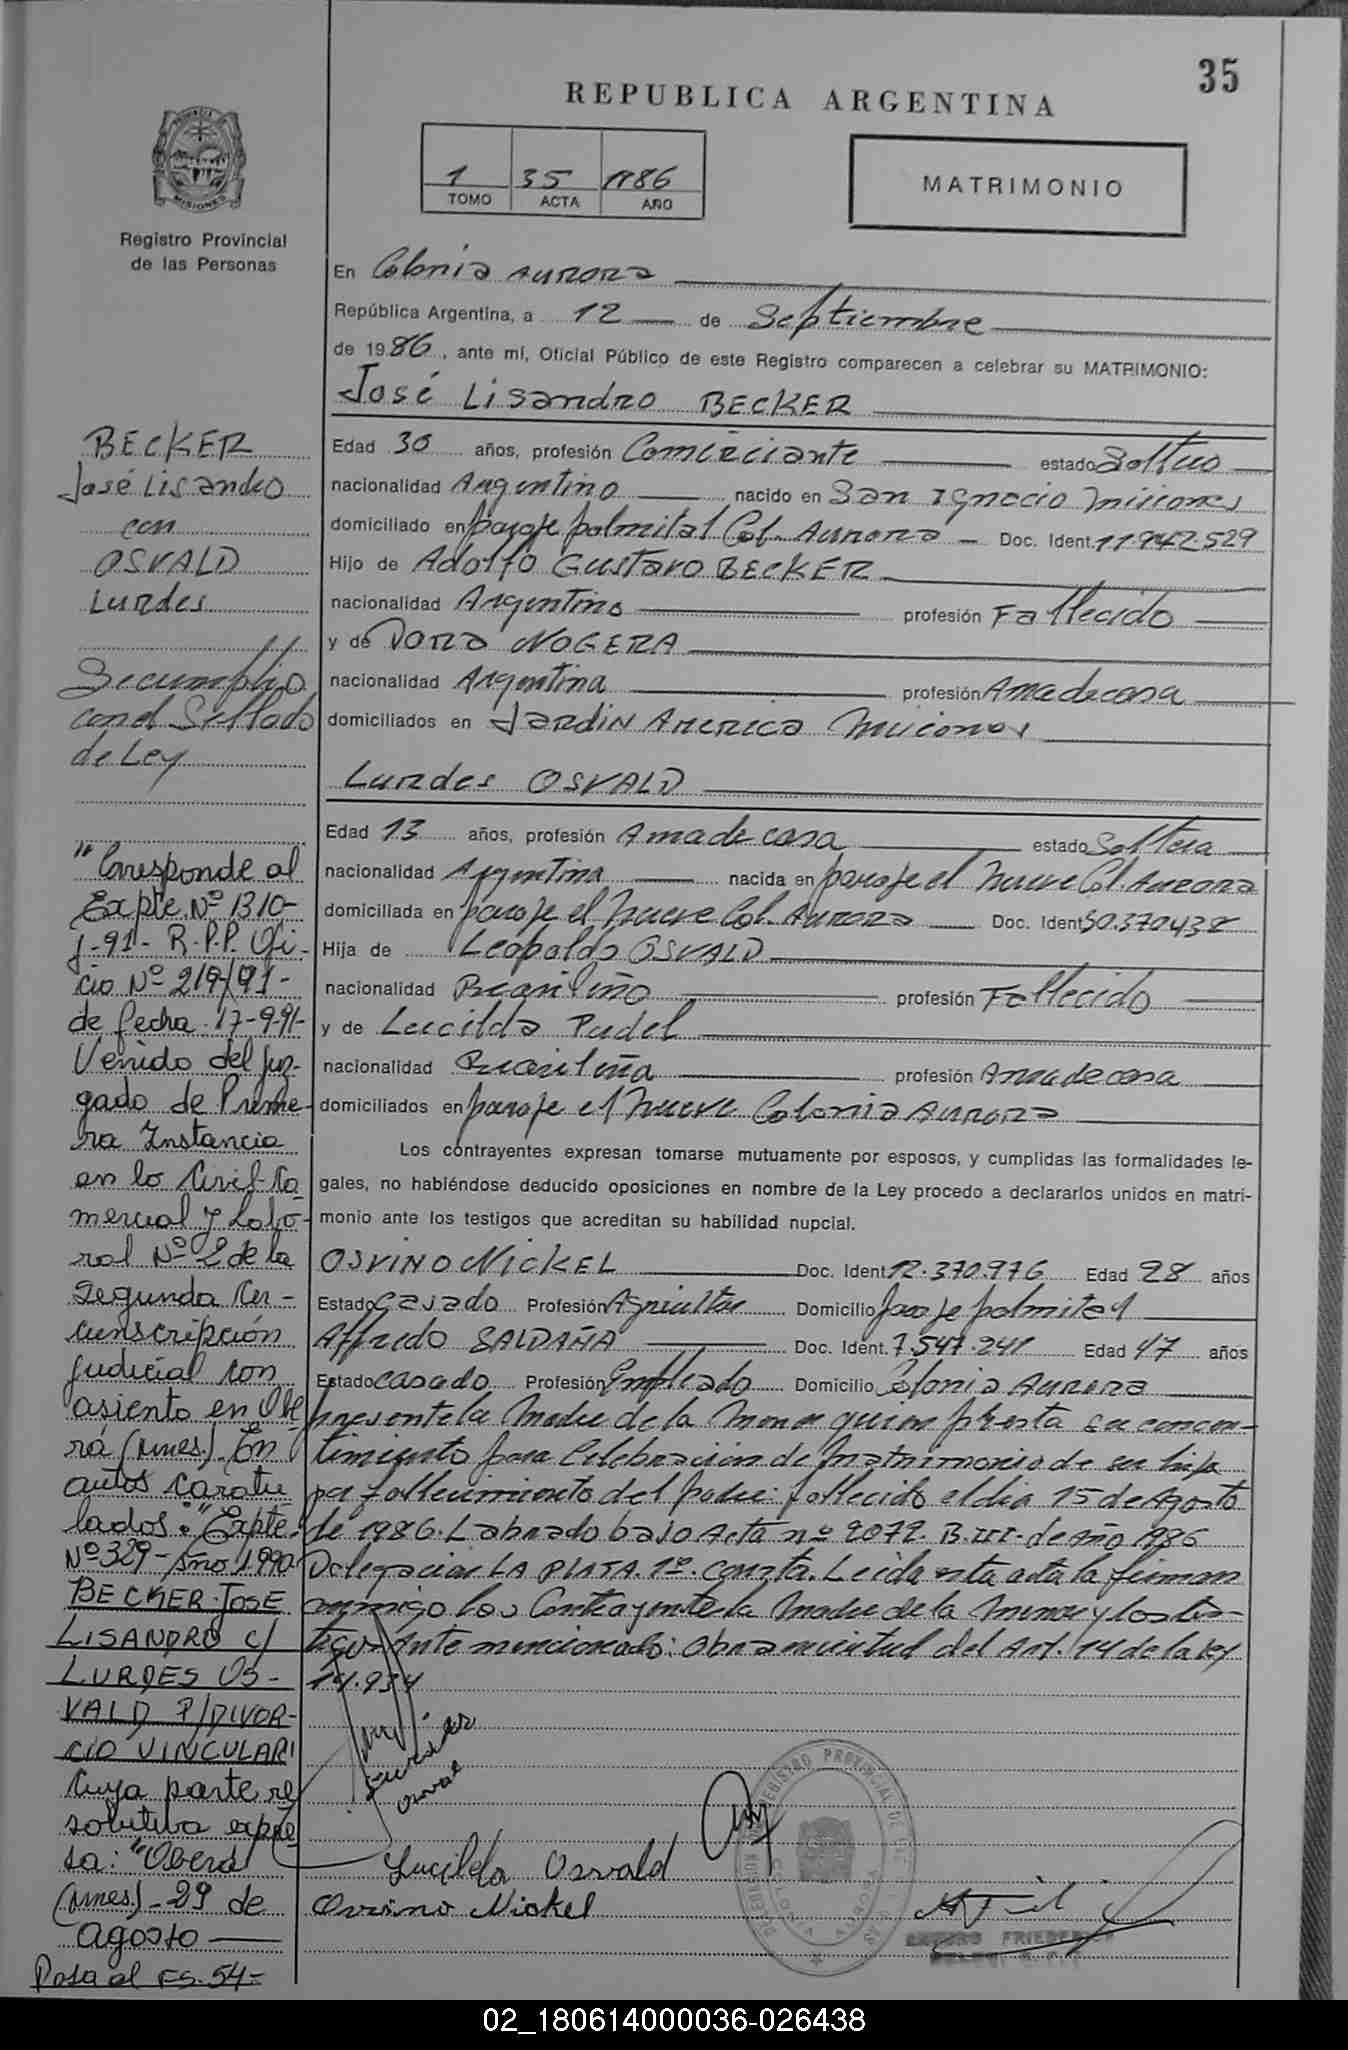 35
REPUBLICA ARGENTINA
1 35 1986
TOMO ACTA AÑO
MATRIMONIO
MISIONES
Registro Provincial
de las Personas
En Colonia Aurora
República Argentina, a 12 de Septiembre
de 1986, ante mí, Oficial Público de este Registro comparecen a celebrar su MATRIMONIO:
José Lisandro BECKER
Edad 30 años, profesión Comerciante estado Soltero
nacionalidad Argentino nacido en San Ignacio Misiones
domiciliado en paraje palmital Col. Aurora - Doc. Ident. 11.942.529
Hijo de Adolfo Gustavo BECKER
nacionalidad Argentino profesión Fallecido
y de Dora NOGERA
nacionalidad Argentina profesión Ama de casa
domiciliados en Jardin America Misiones
Lurdes OSVALD
Edad 13 años, profesión Ama de casa estado Soltera
nacionalidad Argentina nacida en paraje el nueve Col. Aurora
domiciliada en paraje el nueve Col. Aurora Doc. Ident 30.370438
Hija de Leopoldo OSVALD
nacionalidad Brasiliño profesión Fallecido
y de Lucilda Pudel
nacionalidad Brasiliña profesión Ama de casa
domiciliados en paraje el nueve Colonia Aurora
Los contrayentes expresan tomarse mutuamente por esposos, y cumplidas las formalidades le-
gales, no habiéndose deducido oposiciones en nombre de la Ley procedo a declararlos unidos en matri-
monio ante los testigos que acreditan su habilidad nupcial.
OSVINO NICKEL Doc. Ident 12.370.976 Edad 28 años
Estado Casado Profesión Agricultor Domicilio paraje palmital
Alfredo SALDAÑA Doc. Ident. 7.547.241 Edad 47 años
Estado casado Profesión Empleado Domicilio Colonia Aurora
presente la Madre de la menor quien presta su concen-
timiento para Celebracion de Matrimonio de su hija
por fallecimiento del padre: fallecido el dia 15 de Agosto
de 1986. Labrado bajo Acta nº 2072. B.III. de Año 1986
Delegacion LA PLATA. 1º. Leida esta acta la firman
conmigo los Contrayente la Madre de la menor y los tes-
tigos Ante mencionado: Obra en virtud del Art. 14 de la ley
14.934
BECKER
José Lisandro
con
OSVALD
Lurdes
Se cumplio
con el Sellado
de Ley
"Corresponde al
Expte. Nº 1310-
J-91- R.P.P. Ofi-
cio Nº 219/91-
de fecha 17-9-91-
Venido del Juz-
gado de Prime-
ra Instancia
en lo Civil-Co-
mercial y Labo-
ral Nº 2 de la
Segunda Cir-
cunscripción
Judicial con
asiento en Obe
rá (Mnes.). En
autos caratu
lados: "Expte.
Nº 329-Año 1.990-
BECKER JOSE
LISANDRO C/
LURDES OS-
VALD P/DIVOR-
CIO VINCULAR"
Cuya parte re
solutiva expre
sa: "Oberá
(Mnes.)- 29 de
agosto
Pasa al FS. 54-
Lurdes
Osval
Lucilda Osvald
Osvino Nickel
REGISTRO PROVINCIAL DE
COLONIA AURORA
02_180614000036-026438